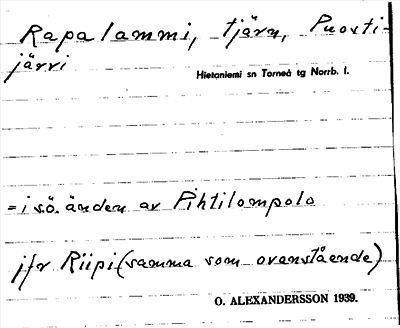 Rapalammi, tjärn, Puosti-
järvi
Hietaniemi sn Torneå tg Norrb. l.
= i sö. änden av Pihtilompolo
jfr Riipi (samma som ovanstående)
O. ALEXANDERSSON 1939.